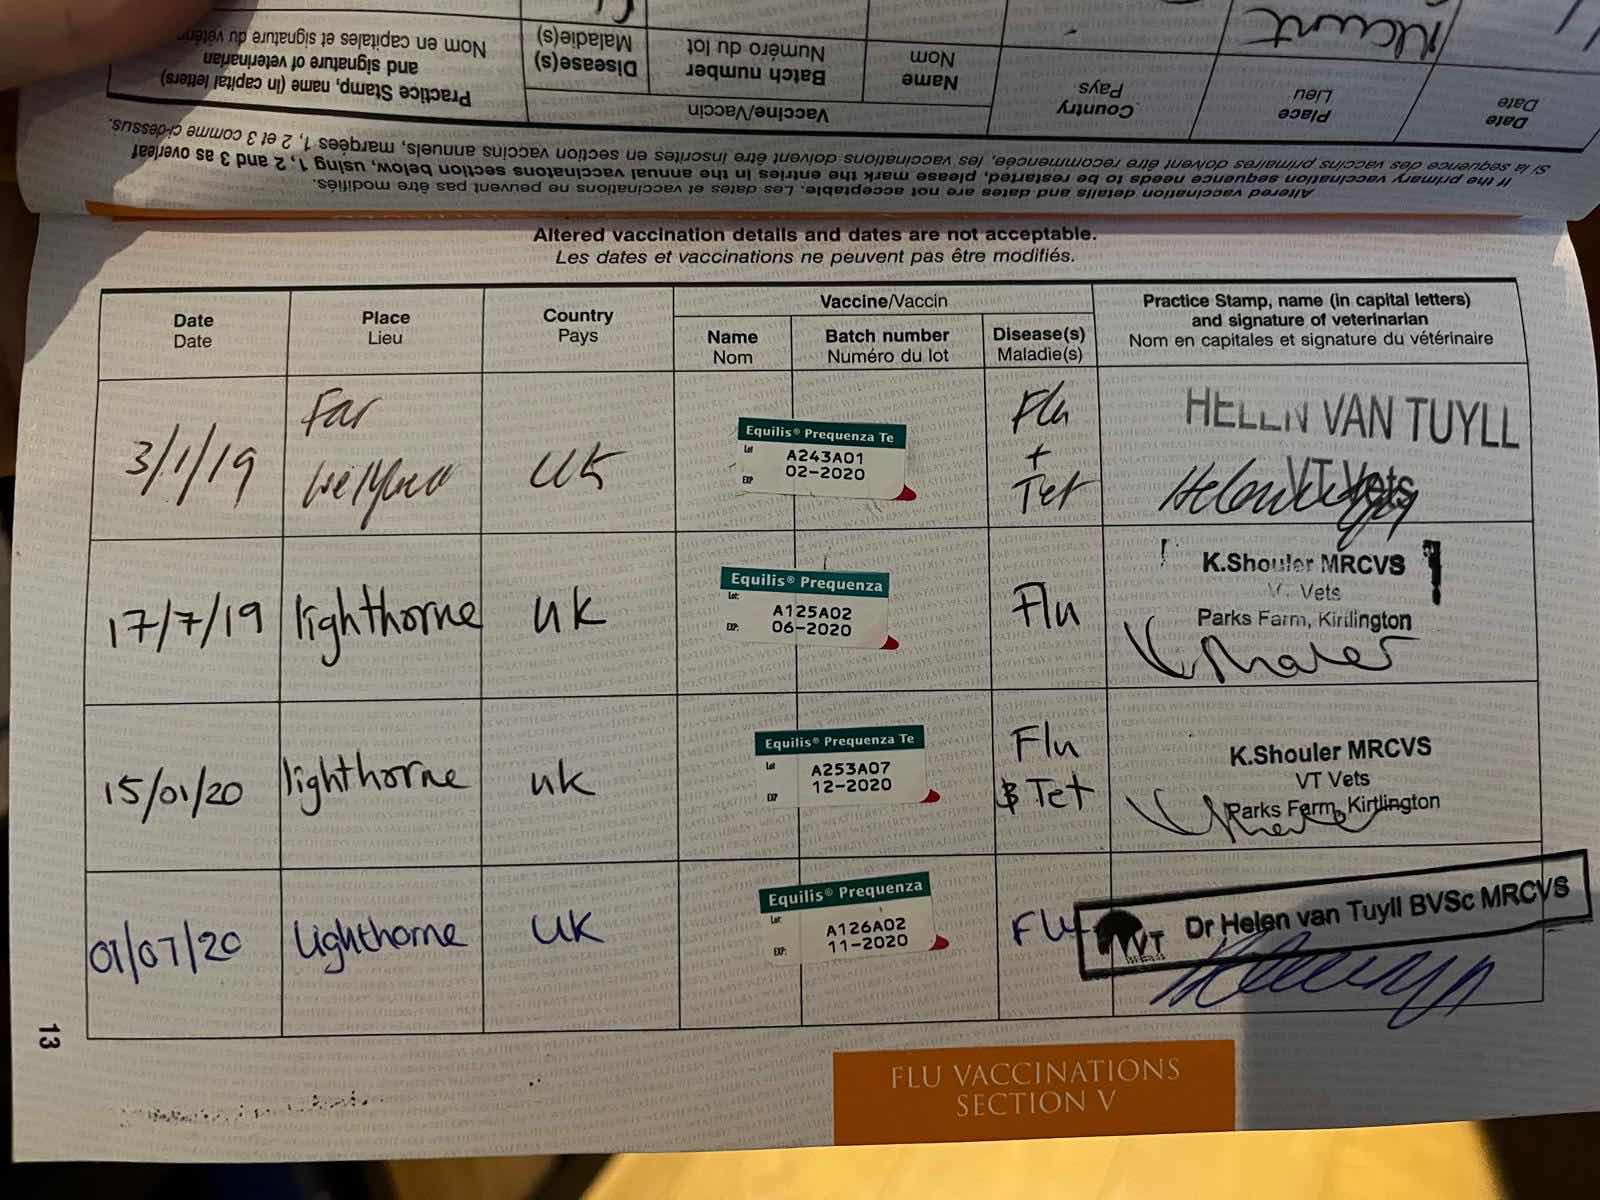 Practice Stamp, name (in capital letters)
and signature of veterinarian
Nom en capitales et signature du
Disease(s)
Maladie(s)
Batch number
Numéro du lot
Name
Nom
Vaccine/Vaccin
Country
Pays
Place
Lieu
Date
Date
If the primary vaccination sequence needs to be restarted, please mark the entries in the annual vaccinations section below, using 1, 2 and 3 as overleaf
Si la séquence des vaccins primaires doivent être recommencée, les vaccinations doivent être inscrites en section vaccins annuels, marqées 1, 2 et 3 comme ci-dessus.
Altered vaccination details and dates are not acceptable. Les dates et vaccinations ne peuvent pas être modifiés.
Altered vaccination details and dates are not acceptable.
Les dates et vaccinations ne peuvent pas être modifiés.
Date
Date
Place
Lieu
Country
Pays
Vaccine/Vaccin
Name
Nom
Batch number
Numéro du lot
Disease(s)
Maladie(s)
Practice Stamp, name (in capital letters)
and signature of veterinarian
Nom en capitales et signature du vétérinaire
3/1/19
Far
UK
Equilis® Prequenza Te
Lot
A243A01
EXP
02-2020
Flu
+
Tet
HELEN VAN TUYLL
VT Vets
17/7/19
lighthorne
UK
Equilis® Prequenza
Lot:
A125A02
EXP:
06-2020
Flu
K.Shouler MRCVS
Vets
Parks Farm, Kirtlington
15/01/20
lighthorne
UK
Equilis® Prequenza Te
Lot
A253A07
EXP
12-2020
Flu
& Tet
K.Shouler MRCVS
VT Vets
Parks Farm, Kirtlington
01/07/20
lighthorne
UK
Equilis® Prequenza
Lot:
A126A02
EXP:
11-2020
Flu
VT
Dr Helen van Tuyll BVSc MRCVS
13
FLU VACCINATIONS
SECTION V